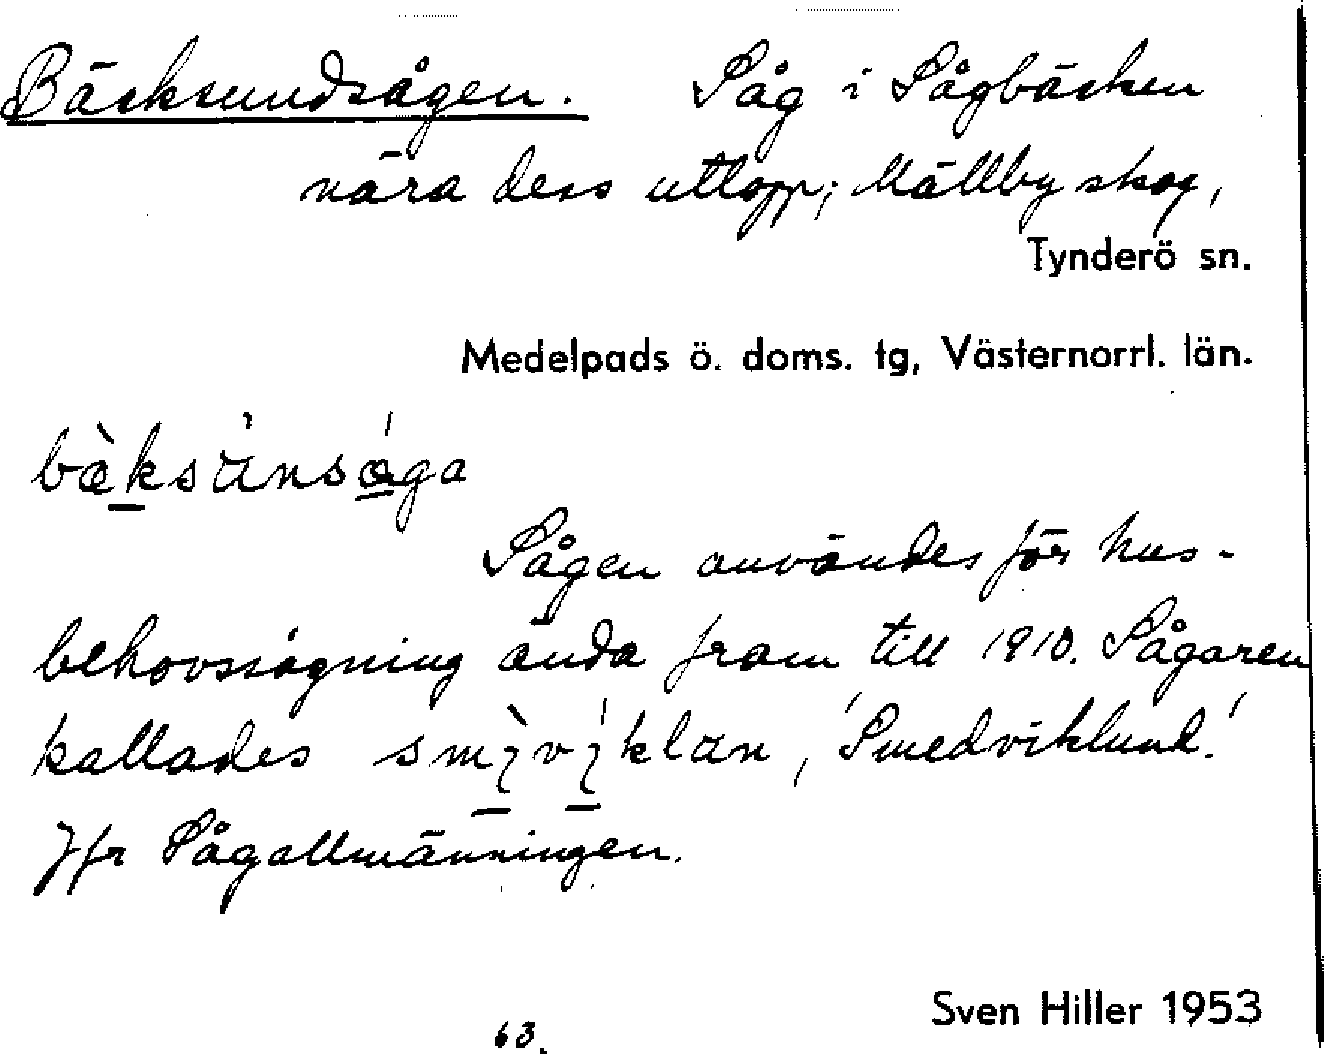 Bäcksundsågen. Såg i Sågbäcken
nära dess utlopp; Mällby skog,
Tynderö sn.
Medelpads ö. doms. tg, Västernorrl. län.
Sågen användes för hus-
behovssågning ända fram till 1910. Sågaren
kallades , 'Smedviklund.'
Jfr Sågallmänningen.
Sven Hiller 1953
63.